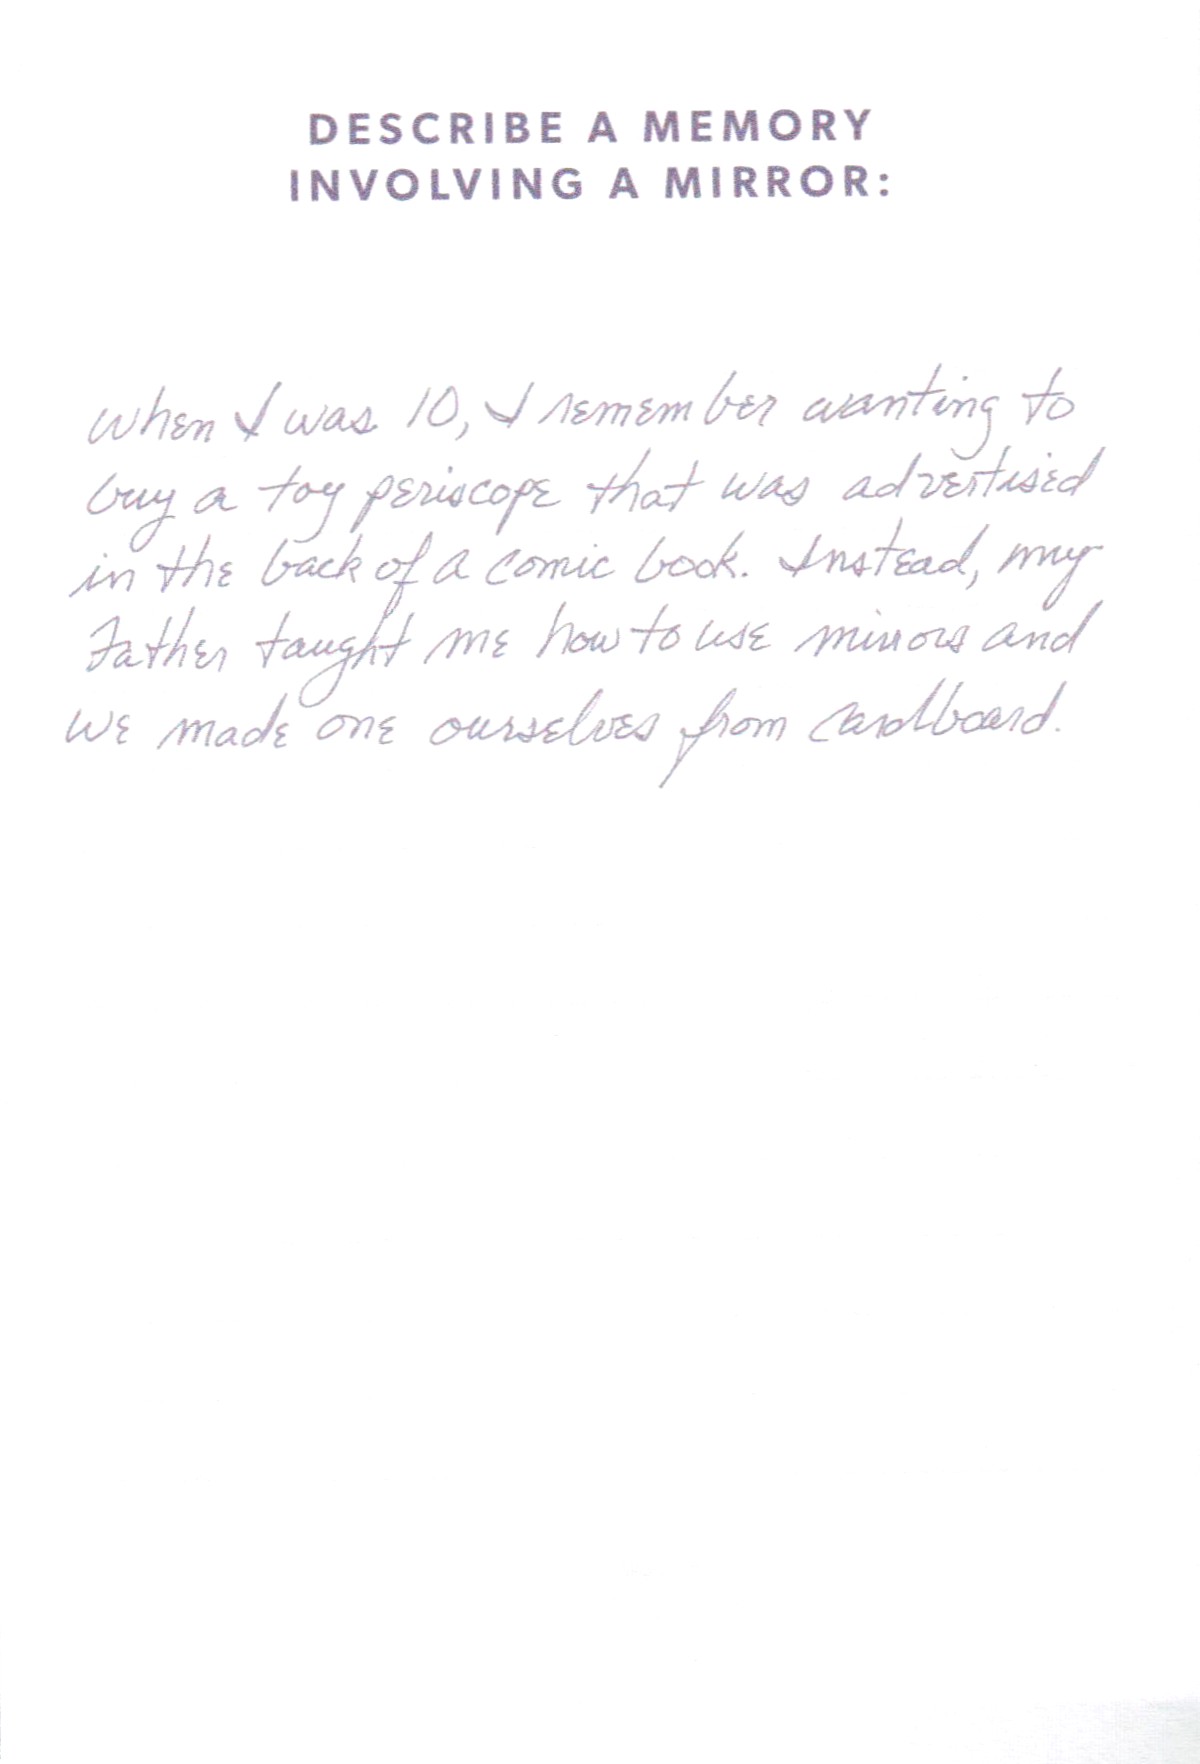 DESCRIBE A MEMORY
INVOLVING A MIRROR:
When I was 10, I remember wanting to
buy a toy periscope that was advertised
in the back of a comic book. Instead, my
Father taught me how to use mirrors and
we made one ourselves from cardboard.